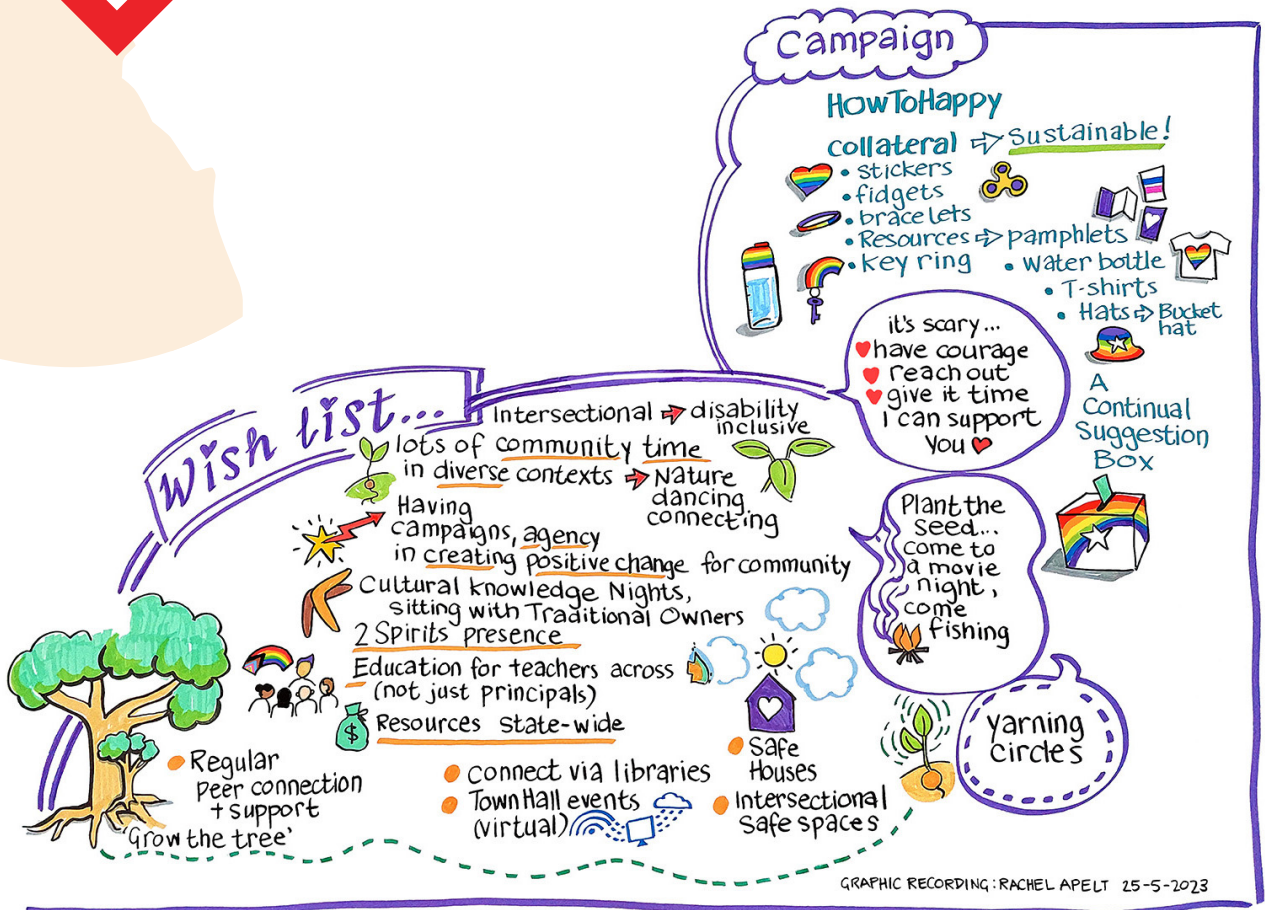 Campaign
HowToHappy
collateral ⇨ Sustainable!
• stickers
• fidgets
• bracelets
• Resources ⇨ pamphlets
• key ring
• water bottle
• T-shirts
• Hats ⇨ Bucket
hat
it's scary...
have courage
reach out
give it time
I can support
you
A
Continual
Suggestion
Box
Wish list...
Intersectional → disability
inclusive
lots of community time
in diverse contexts → Nature
dancing
connecting
Having
campaigns, agency
in creating positive change for community
Cultural Knowledge Nights,
sitting with Traditional Owners
2 Spirits presence
Education for teachers across
(not just principals)
$
Resources state-wide
Plant the
seed...
come to
a movie
night,
come
fishing
Yarning
circles
• Regular
peer connection
+ support
'Grow the tree'
• Connect via libraries
• Town Hall events
(virtual)
• Safe
Houses
• Intersectional
Safe spaces
GRAPHIC RECORDING: RACHEL APELT 25-5-2023